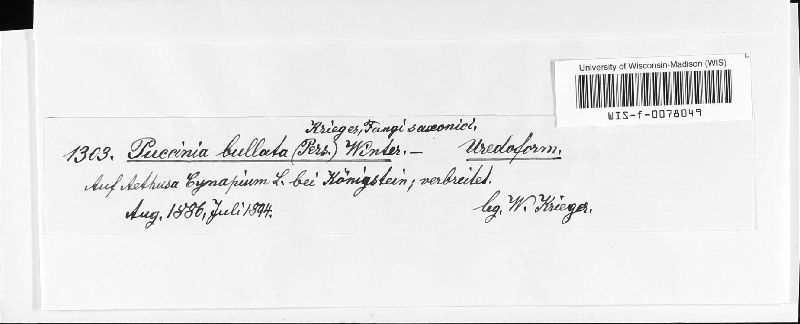 University of Wisconsin-Madison (WIS)
WIS-f-0078049
Krieger, Fungi saxonici.
1303. Puccinia bullata (Pers.) Winter. — Uredoform.
Auf Aethusa Cynapium L. bei Königstein, verbreitet.
Aug. 1886, Juli 1894.
leg. W. Krieger.